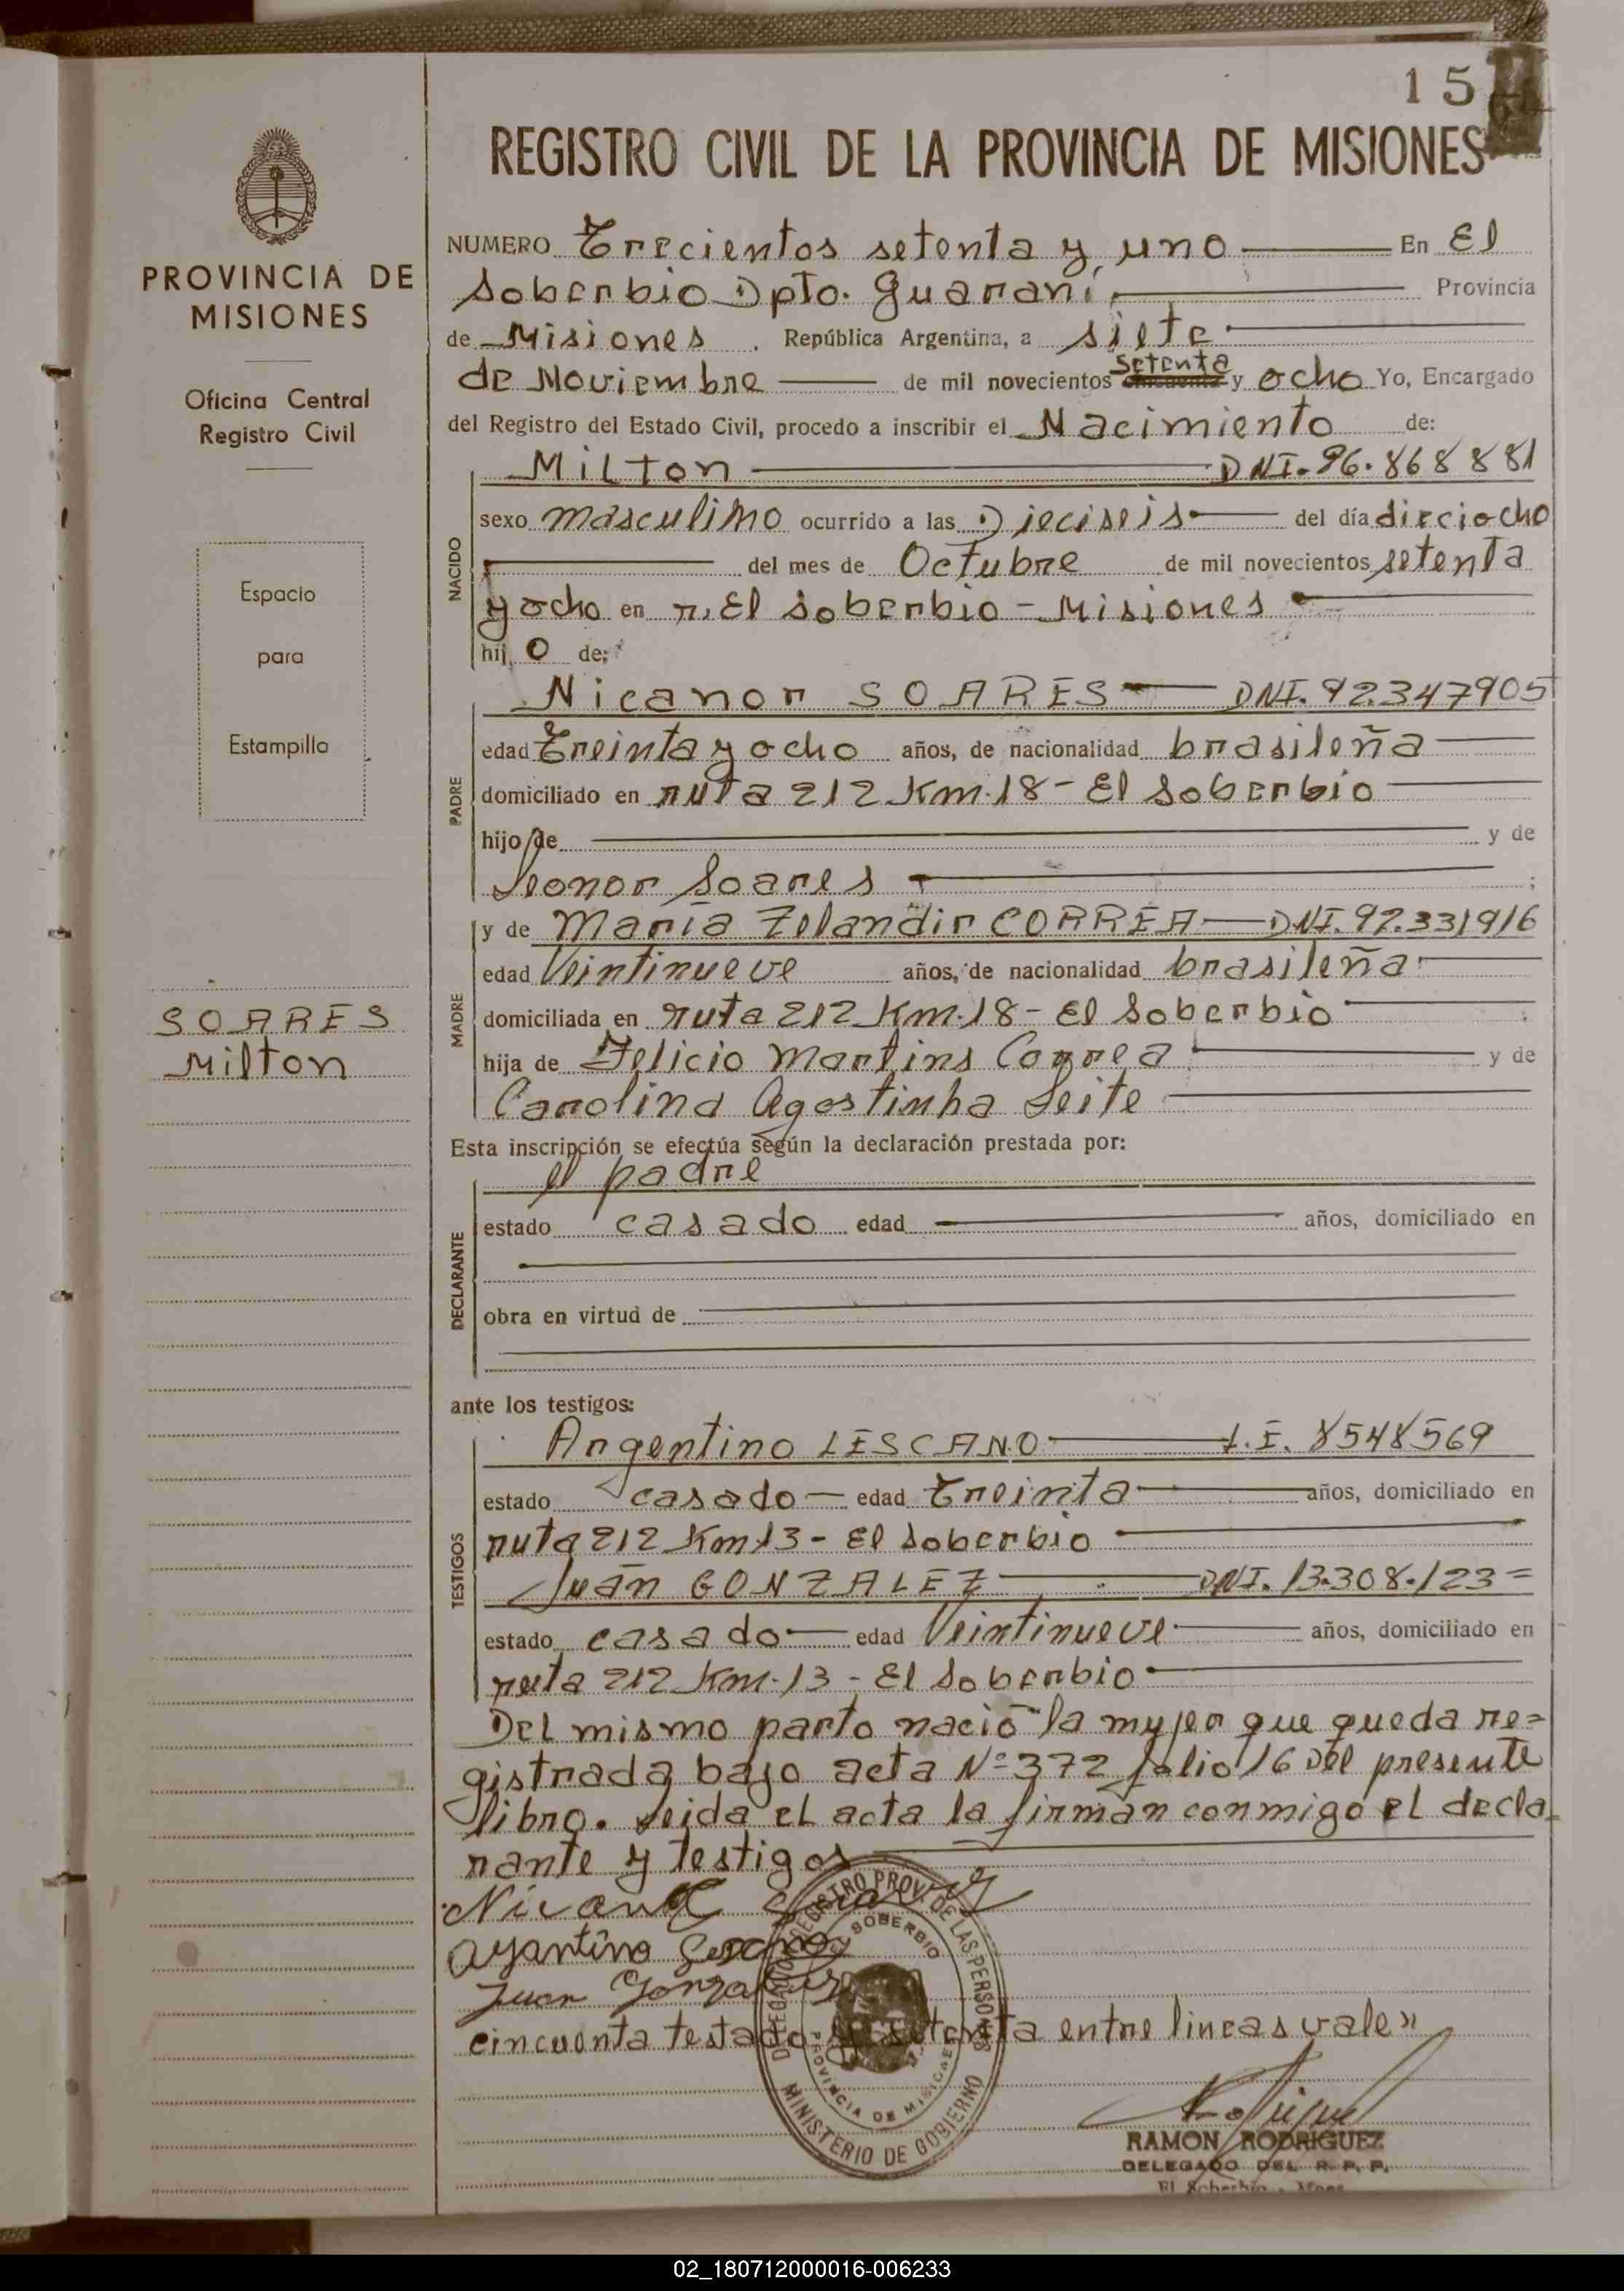 15
REGISTRO CIVIL DE LA PROVINCIA DE MISIONES
PROVINCIA DE
MISIONES
Oficina Central
Registro Civil
Espacio
para
Estampilla
SOARES
Milton
NUMERO Trecientos setenta y uno En El
Soberbio Dpto. Guaraní Provincia
de Misiones. República Argentina, a siete
de Noviembre de mil novecientos cincuenta setenta y ocho Yo, Encargado
del Registro del Estado Civil, procedo a inscribir el Nacimiento de:
NACIDO
Milton DNI. 96.868881
sexo masculino ocurrido a las Dieciseis del día dieciocho
del mes de Octubre de mil novecientos setenta
y ocho en r. El Soberbio - Misiones
hij o de:
PADRE
Nicanor SOARES DNI. 92.347905
edad Treinta y ocho años, de nacionalidad brasileña
domiciliado en ruta 212 Km. 18 - El Soberbio
hijo de y de
Leonor Soares ;
MADRE
y de María Zelandir CORREA DNI. 92.331916
edad Veintinueve años, de nacionalidad brasileña
domiciliada en ruta 212 Km. 18 - El Soberbio
hija de Felicio Martins Correa y de
Carolina Agostinha Leite
Esta inscripción se efectúa según la declaración prestada por:
DECLARANTE
el padre
estado casado edad años, domiciliado en
obra en virtud de
ante los testigos:
TESTIGOS
Argentino LESCANO L.E. 8548569
estado casado edad Treinta años, domiciliado en
ruta 212 Km 13 - El Soberbio
Juan GONZALEZ DNI. 13.308.123 =
estado casado edad Veintinueve años, domiciliado en
ruta 212 Km. 13 - El Soberbio
Del mismo parto nació la mujer que queda re=
gistrada bajo acta Nº 372 folio 16 del presente
libro. Leida el acta la firman conmigo el decla
rante y testigos
Argentino Lescano
Juan Gonzalez
cincuenta testado y setenta entre lineas vale"
EL SOBERBIO
PROVINCIA DE MISIONES
MINISTERIO DE GOBIERNO
RAMON RODRIGUEZ
DELEGADO DEL R. P. P.
El Soberbio - Mnes
02_180712000016-006233